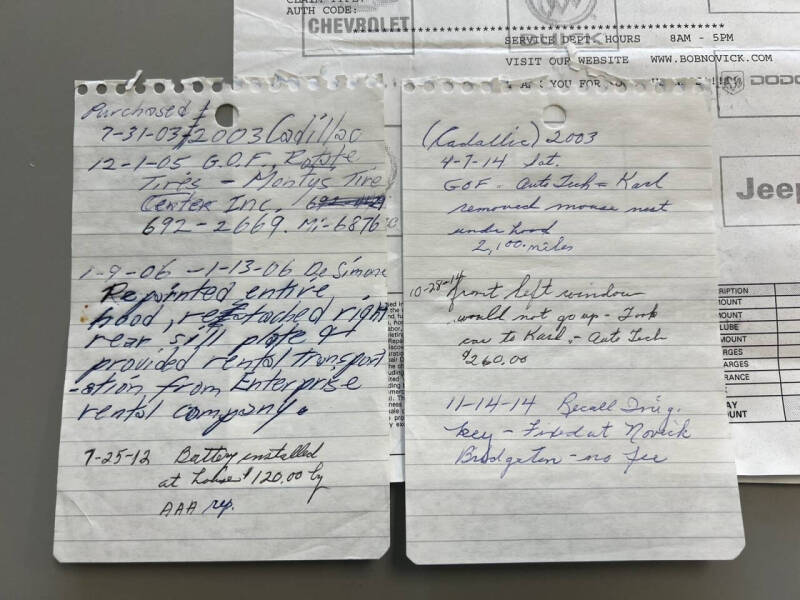 CLAIM TYPE:
AUTH CODE:
CHEVROLET
SERVICE DEPT. HOURS 8AM - 5PM
VISIT OUR WEBSITE WWW.BOBNOVICK.COM
YOU FOR
DODG
Jeep
RIPTION
MOUNT
MOUNT
LUBE
MOUNT
RGES
ARGES
RANCE
AY
OUNT
Purchased
7-31-03 2003 Cadillac
12-1-05 G.O.F., Rotate
Tires - Montys Tire
Center Inc,
692-2669. Mi-6876
1-9-06 -1-13-06 De Simone
Repainted entire
hood, reattached right
rear sill plate &
provided rental transport
-ation from Enterprise
rental company.
7-25-12 Battery installed
at house $120.00 by
AAA rep.
(Cadallic) 2003
4-7-14 Sat.
GOF - Auto Tech - Karl
removed mouse nest
under hood
2,100 miles
10-28-14 front left window
would not go up - Took
car to Karl - Auto Tech
$260.00
11-14-14 Recall
key - Fixed at Novick
Bridgeton - no fee